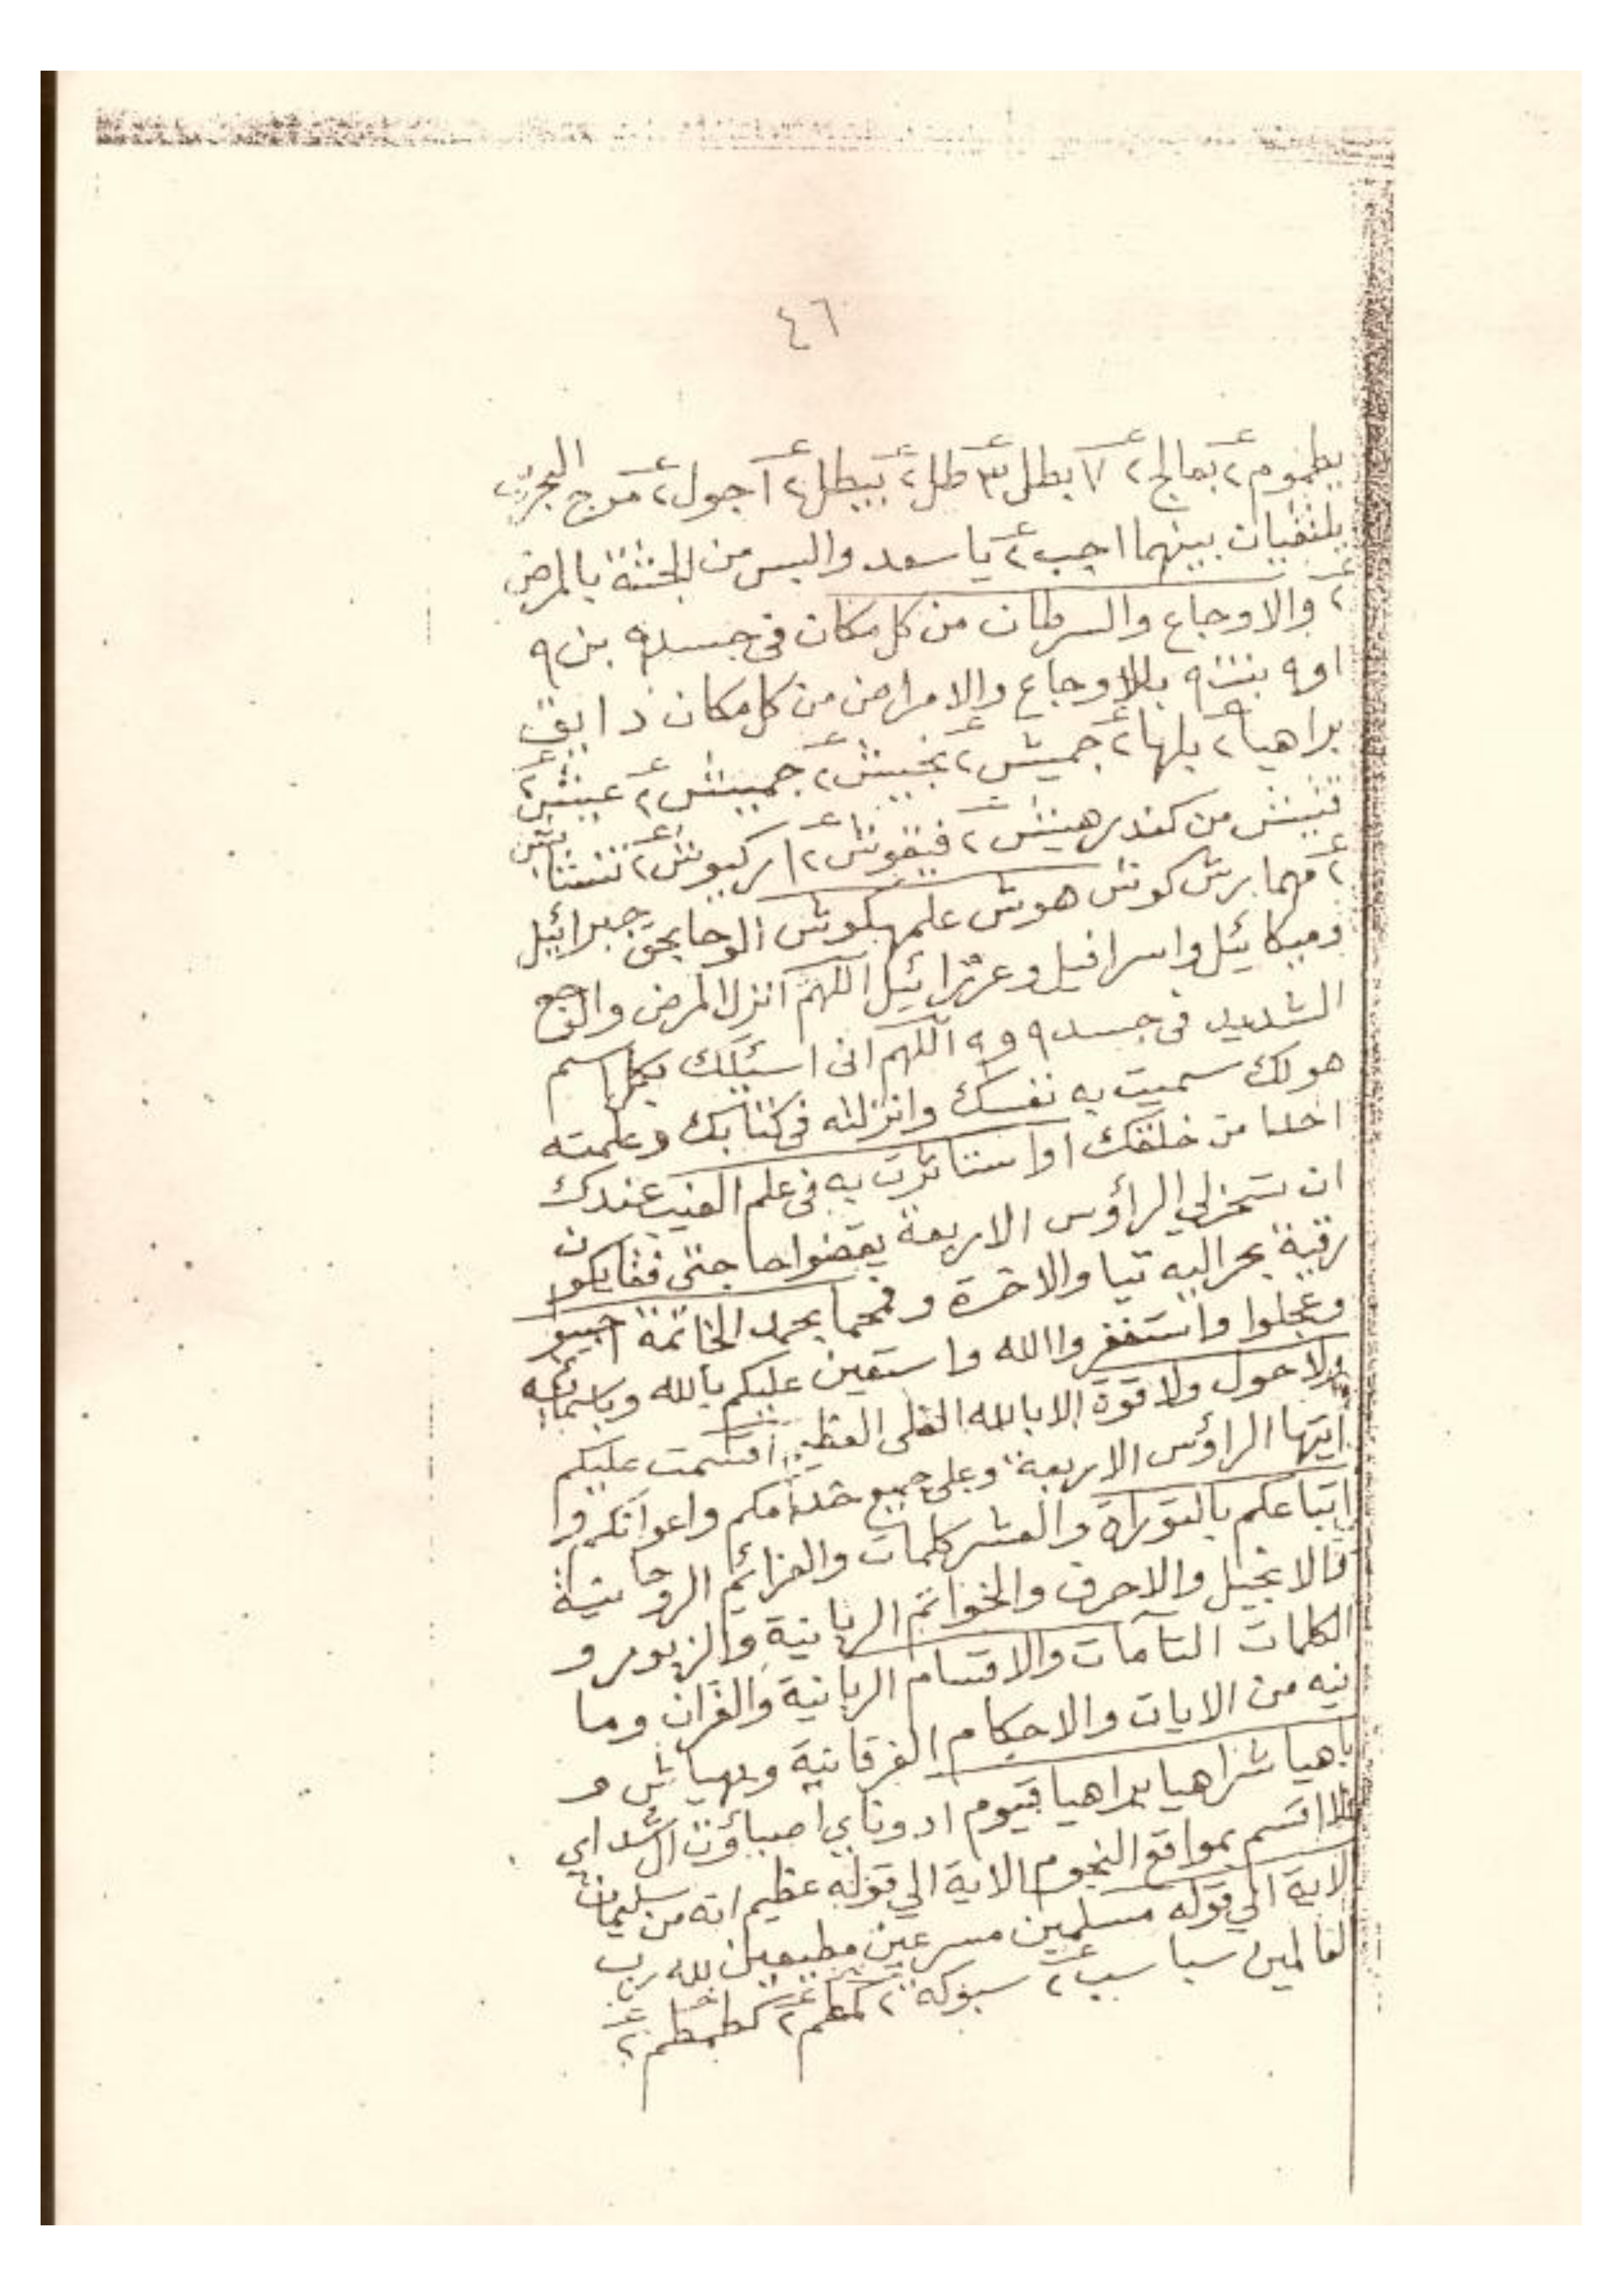 ٤٦
يطموم ٢ بعالج ٢ ٧ بطل ٣ طل ٢ بيطل ٢ اجول ٢ مرج البحرين
يلتقيان بينهما اجب ٢ يا سعد والبس من الجثة بالمرض
٢ والاوجاع والسرطان من كل مكان في جسد ٩ بن ٩
او ٩ بنت ٩ بالاوجاع والامراض من كل مكان
براهيا ٢ يلها ٢ جميش ٢ جميش ٢
من كندرهيش ٢ فيقوش ٢ اركيوش ٢
٢ مهما برش كوش هوش علمهكوش الوحا بحق جبرائيل
وميكائيل واسرافيل وعزرائيل اللهم انزل المرض والوجع
الشديد في جسد ٩ و ٩ اللهم انى اسئلك بكل اسم
هولك سميت به نفسك وانزلته في كتابك وعلمته
احدا من خلقك اواستاثرت به في علم الغيب عندك
ان تسخرلي الراؤس الاربعة يقضوا حاجتى
والاخرة الخاتمة اجيبو
وعجلوا واستغفروا الله واستعين عليكم بالله وباسمائه
ولا حول ولا قوة الا بالله العلى العظيم اقسمت عليكم
ايتها الراؤس الاربعة وعلى جميع خدامكم واعوانكم وا
اتباعكم بالتوراة والعشر كلمات والعزائم الروحانية
والانجيل والاحرف والخواتم الربانية والزبور و
الكلمات التآمات والاقسام الربانية والقرآن وما
فيه من الايات والاحكام الفرقانية و و
باهيا شراهيا براهيا قيوم ادوناي اصباؤت ال شداي
فلا اقسم بمواقع النجوم الاية الي قوله عظيم انه من سليمان
الاية الي قوله مسلمين مسرعين مطيعين لله رب
العالمين سبا سب ٢ سبوكه ٢ كمطم ٢ كطمطم ٢